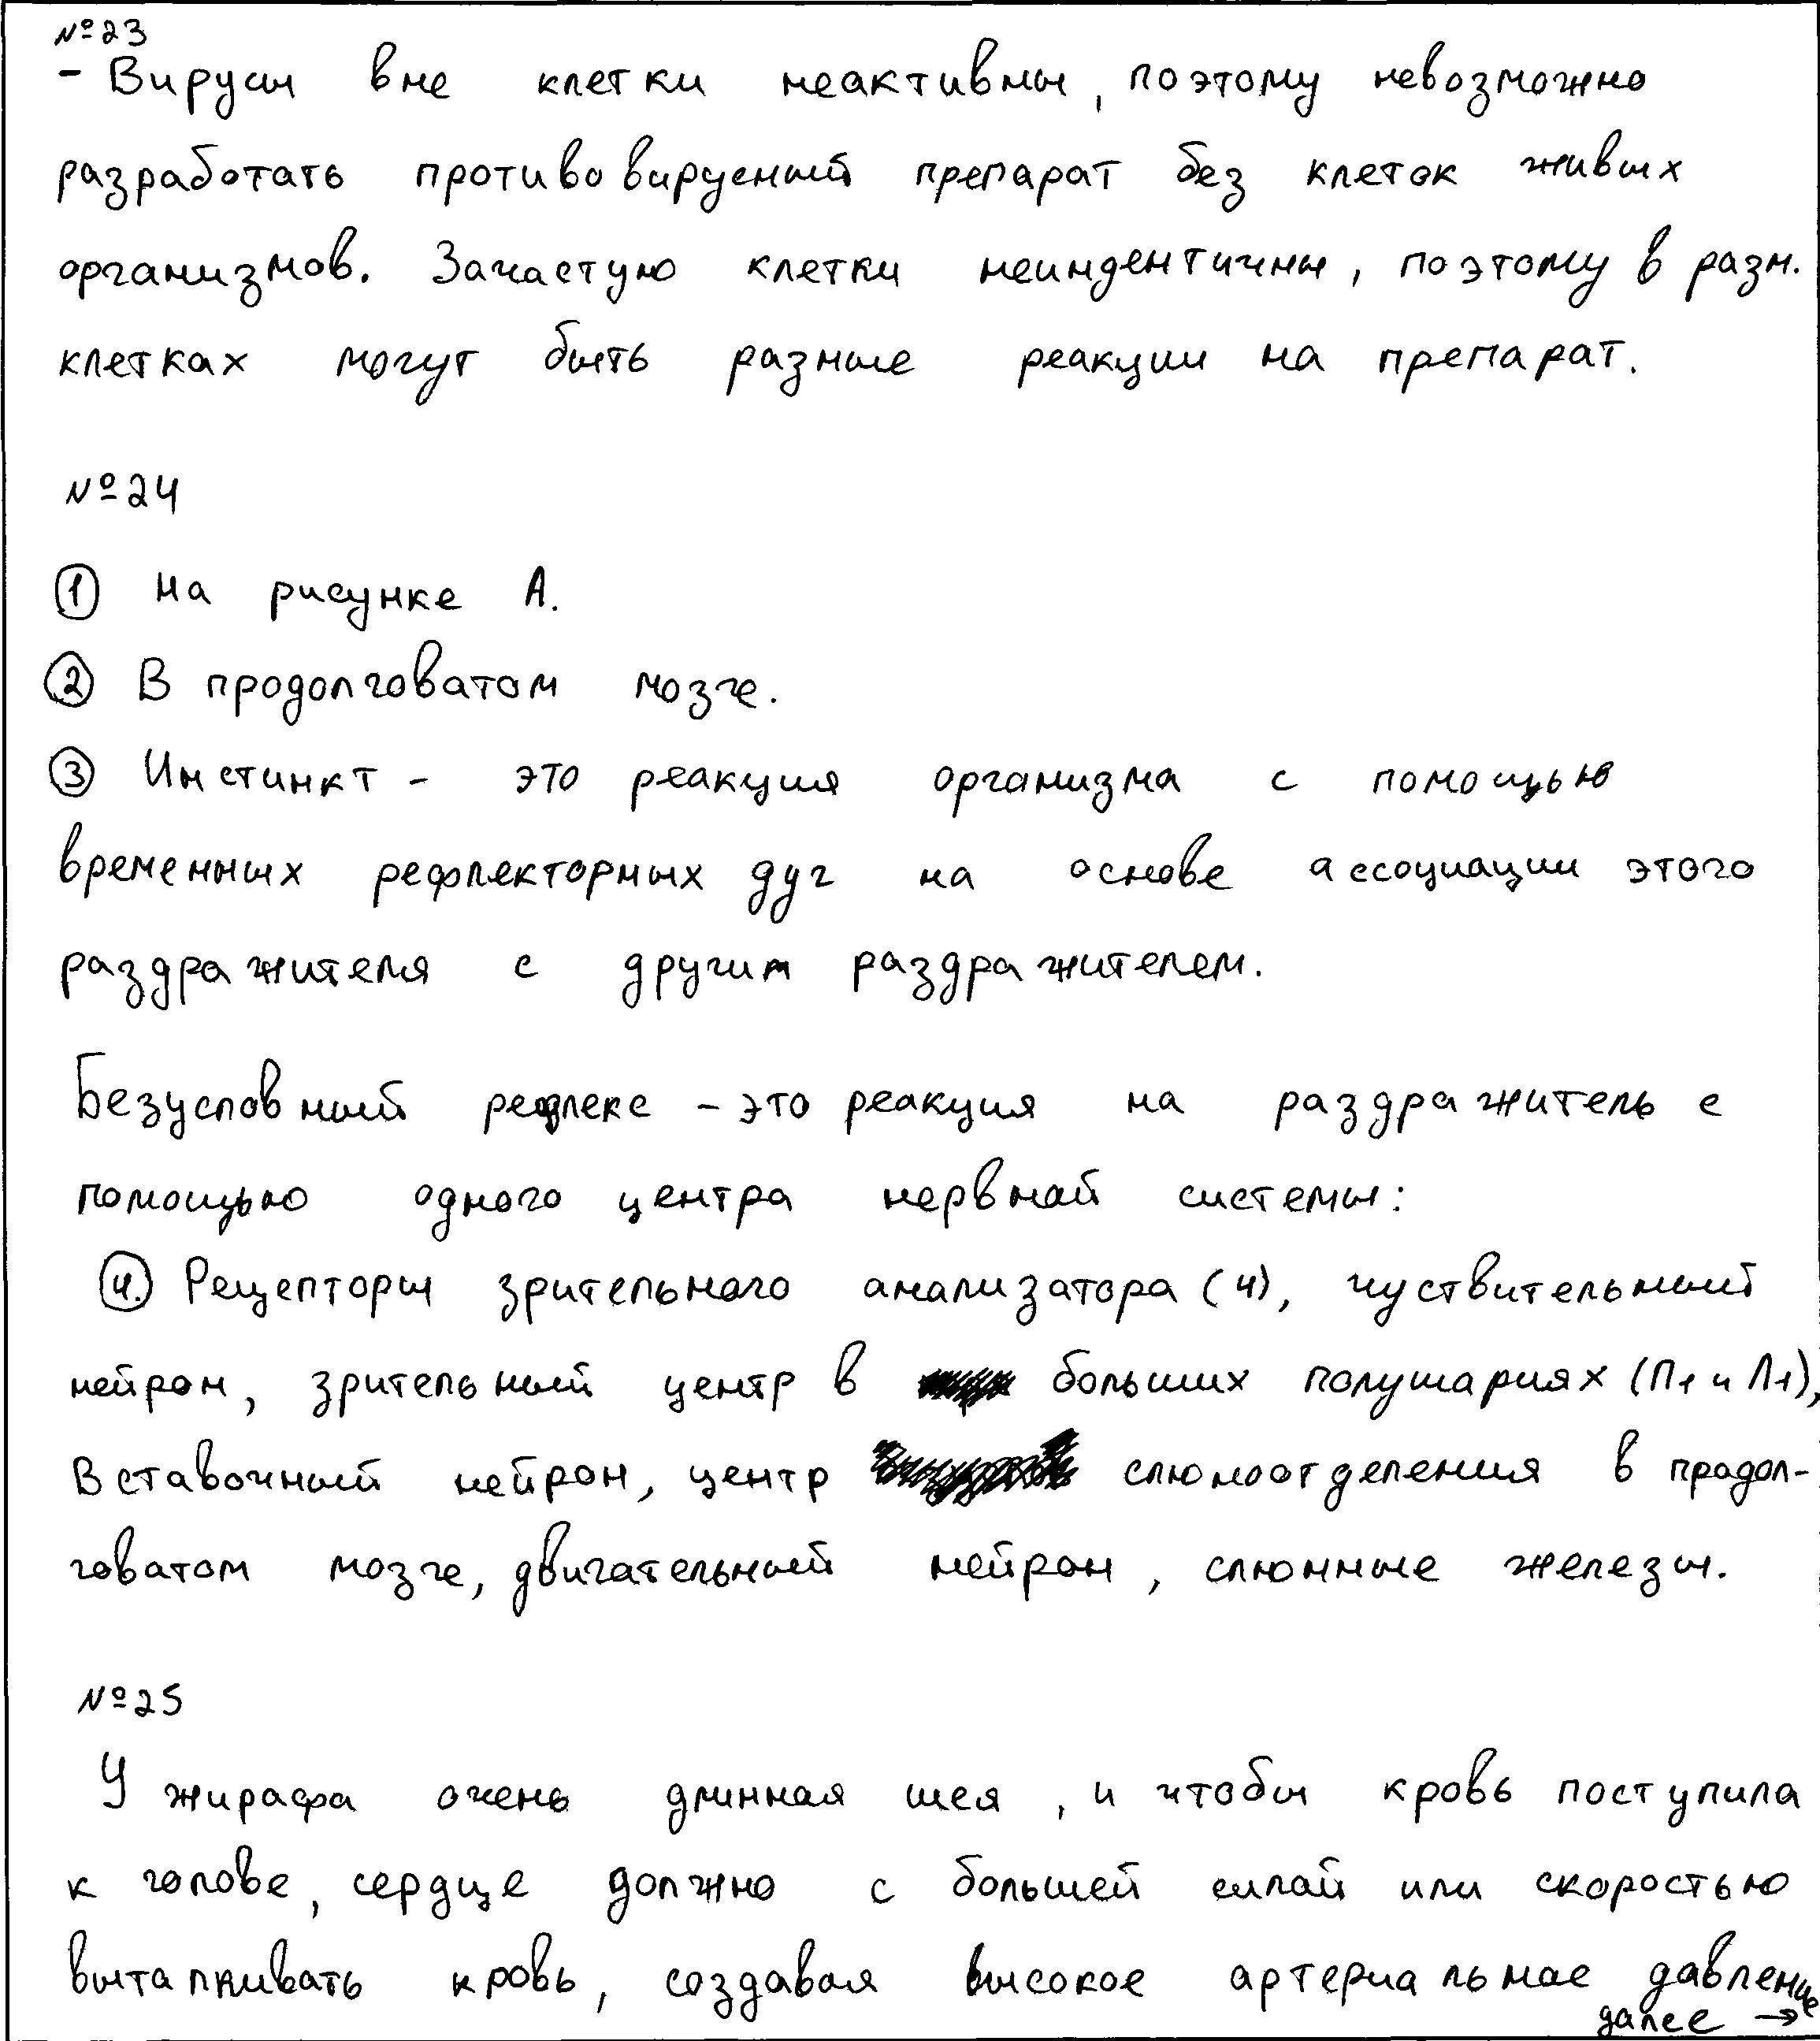 №23
- Вирусы вне клетки неактивны, поэтому невозможно
разработать противовирусный препарат без клеток живых
организмов. Зачастую клетки неиндентичны, поэтому в разн.
клетках могут быть разные реакции на препарат.
№24
① На рисунке А.
② В продолговатом мозге.
③ Инстинкт - это реакция организма с помощью
временных рефлекторных дуг на основе ассоциации этого
раздражителя с другим раздражителем.
Безусловный рефлекс - это реакция на раздражитель с
помощью одного центра нервной системы:
④. Рецепторы зрительного анализатора (ч), чуствительный
нейрон, зрительный центр в больших полушариях (П1 и Л1),
вставочный нейрон, центр слюноотделения в продол-
говатом мозге, двигательный нейрон, слюнные железы.
№25
У жирафа очень длинная шея, и чтобы кровь поступила
к голове, сердце должно с большей силой или скоростью
выталкивать кровь, создавая высокое артериальное давление
далее →